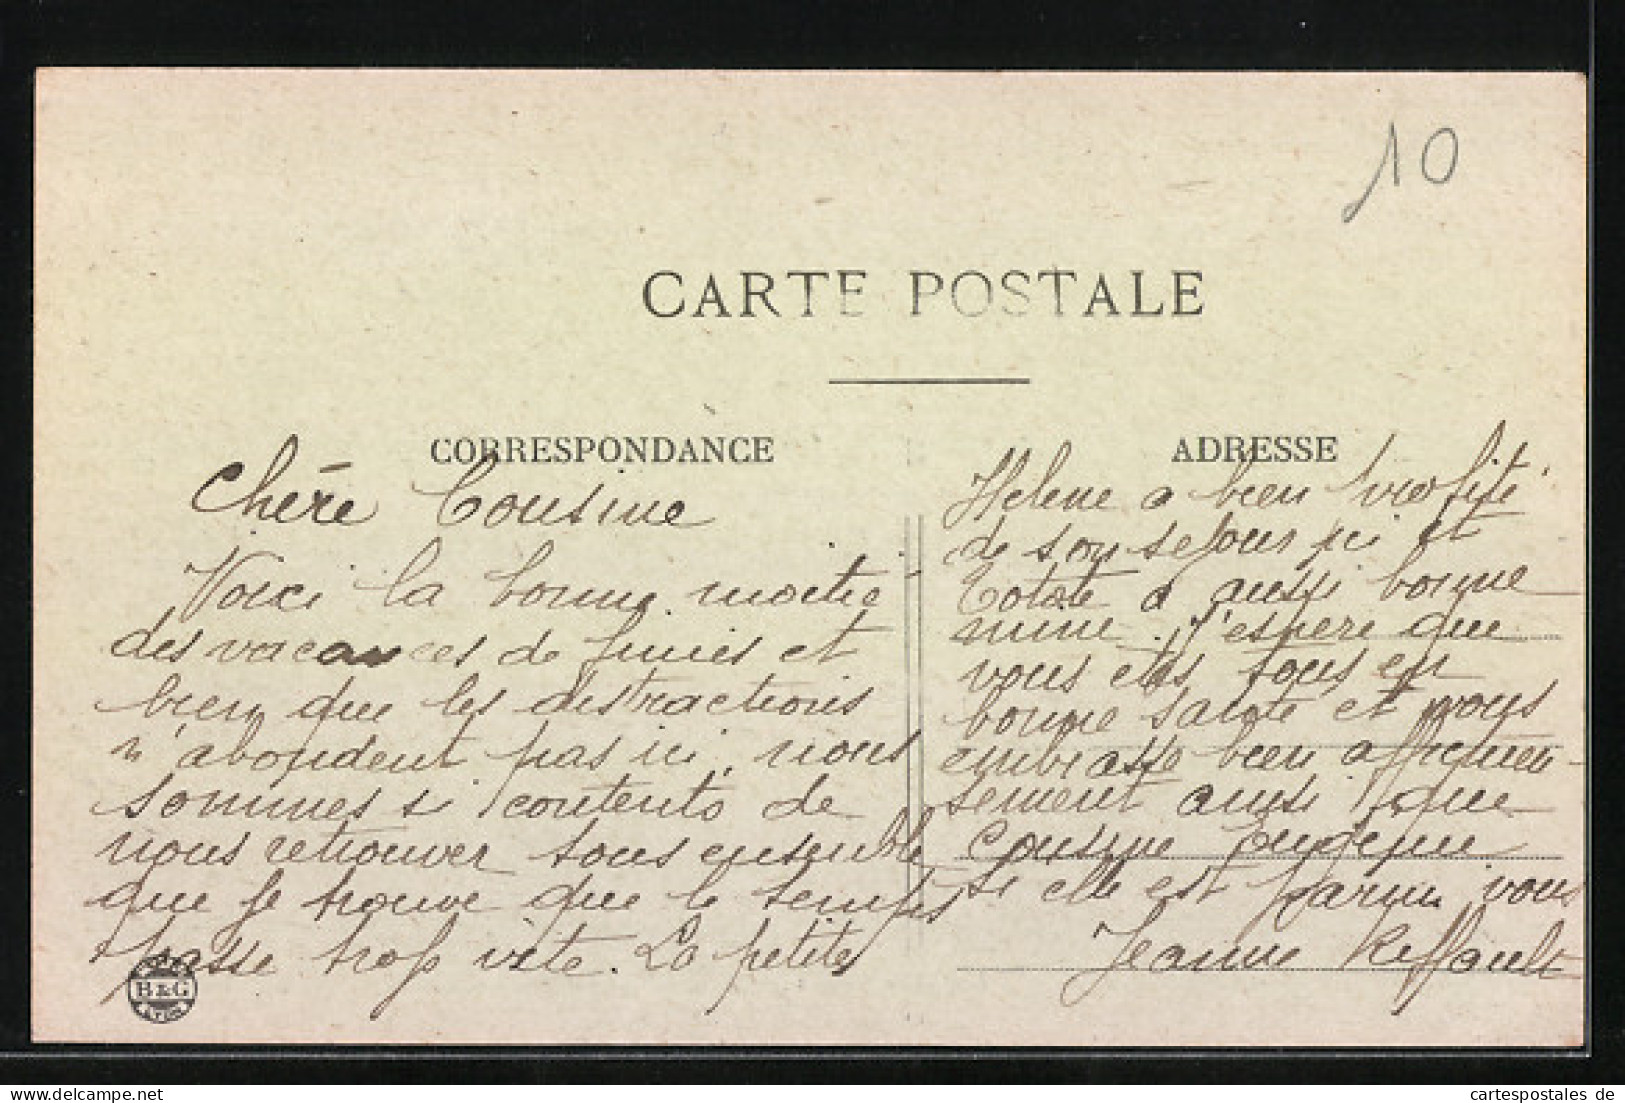 10
CARTE POSTALE
CORRESPONDANCE
Chére Cousine
Voici la bonne moitie
des vacances de finies et
bien que les distractions
n'abondent pas ici, nous
sommes si contents de
nous retrouver tous ensemble
que je trouve que le temps
passe trop vite. La petite
B & G
LYON
ADRESSE
Helene a bien profité
de son sejour ici et
a aussi bonne
mine. J'espere que
vous etes tous en
bonne sante et vous
embrasse bien affectueu-
sement ainsi que
cousine Eugenie
si elle est parmi vous
Jeanne Reffault
cartespostales de